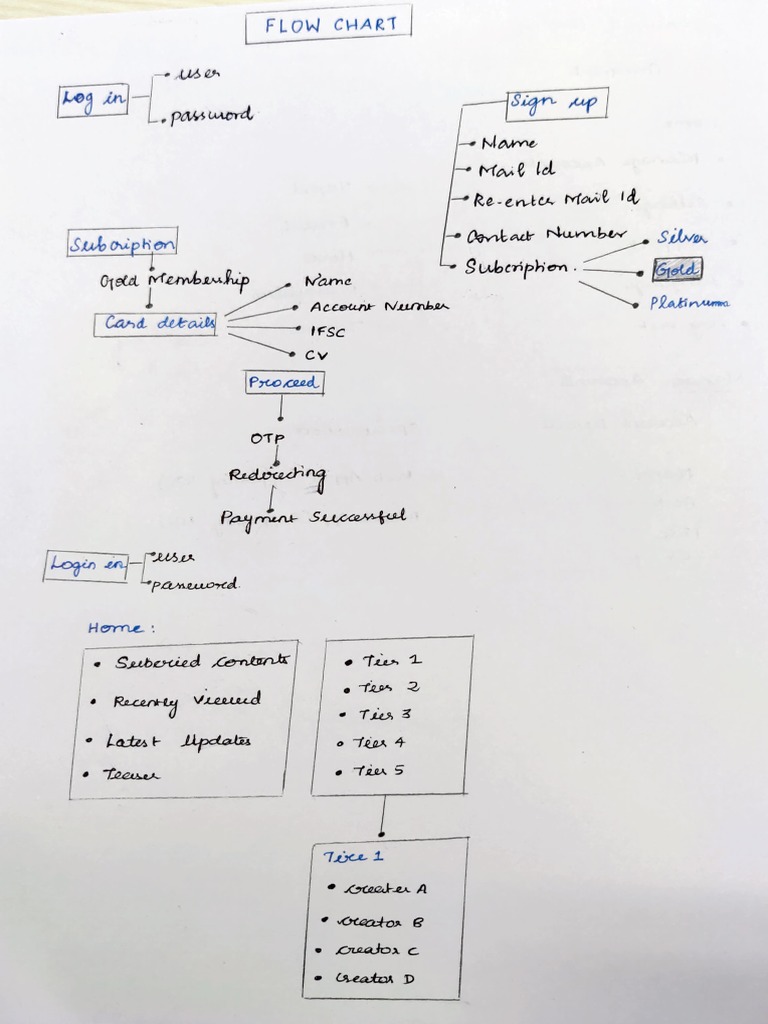 FLOW CHART
Log in
• user
• password
Sign up
• Name
• Mail Id
• Re-enter Mail Id
• Contact Number
• Subcription.
• Silver
• Gold
• Platinum
Subcription
Gold Membership
Card details
• Name
• Account Number
• IFSC
• CV
Proceed
OTP
Redirecting
Payment Successful
Login in
• user
• password.
Home :
• Subcried contents
• Recently Viewed
• Latest Updates
• Teaser
• Tier 1
• Tier 2
• Tier 3
• Tier 4
• Tier 5
Tire 1
• Creater A
• Creator B
• Creator C
• Creator D